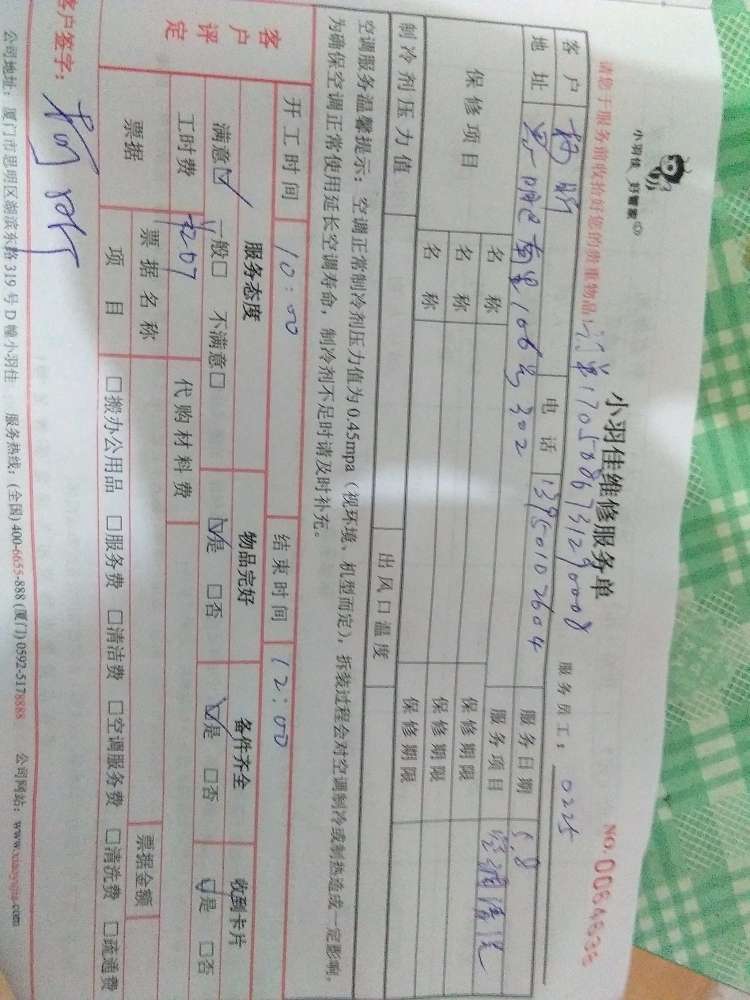 小羽佳 好管家
小羽佳维修服务单
NO.
请您于服务前收拾好您的贵重物品!
服务员工: 0225
客户 电话 13950102604 服务日期 5.8
地址 南里106号302 服务项目 空调清洗
保修项目 名称 保修期限
名称 保修期限
名称 保修期限
制冷剂压力值 出风口温度
空调服务温馨提示:空调正常制冷剂压力值为0.45mpa(视环境、机型而定),拆装过程会对空调制冷或制热造成一定影响,
为确保空调正常使用延长空调寿命,制冷剂不足时请及时补充。
开工时间 10:00 结束时间 12:00
客户评定 服务态度 物品完好 备件齐全 收到卡片
满意☑ 一般□ 不满意□ ☑是 □否 ☑是 □否 ☑是 □否
工时费 代购材料费
票据 票据名称 票据金额
项目 □搬办公用品 □服务费 □清洁费 □空调服务费 □清洗费 □疏通费
客户签字:
公司地址:厦门市思明区湖滨东路319号D幢小羽佳 服务热线:(全国)400-6655-888 (厦门)0592-5178888 公司网站:www.xiaoyujia.com